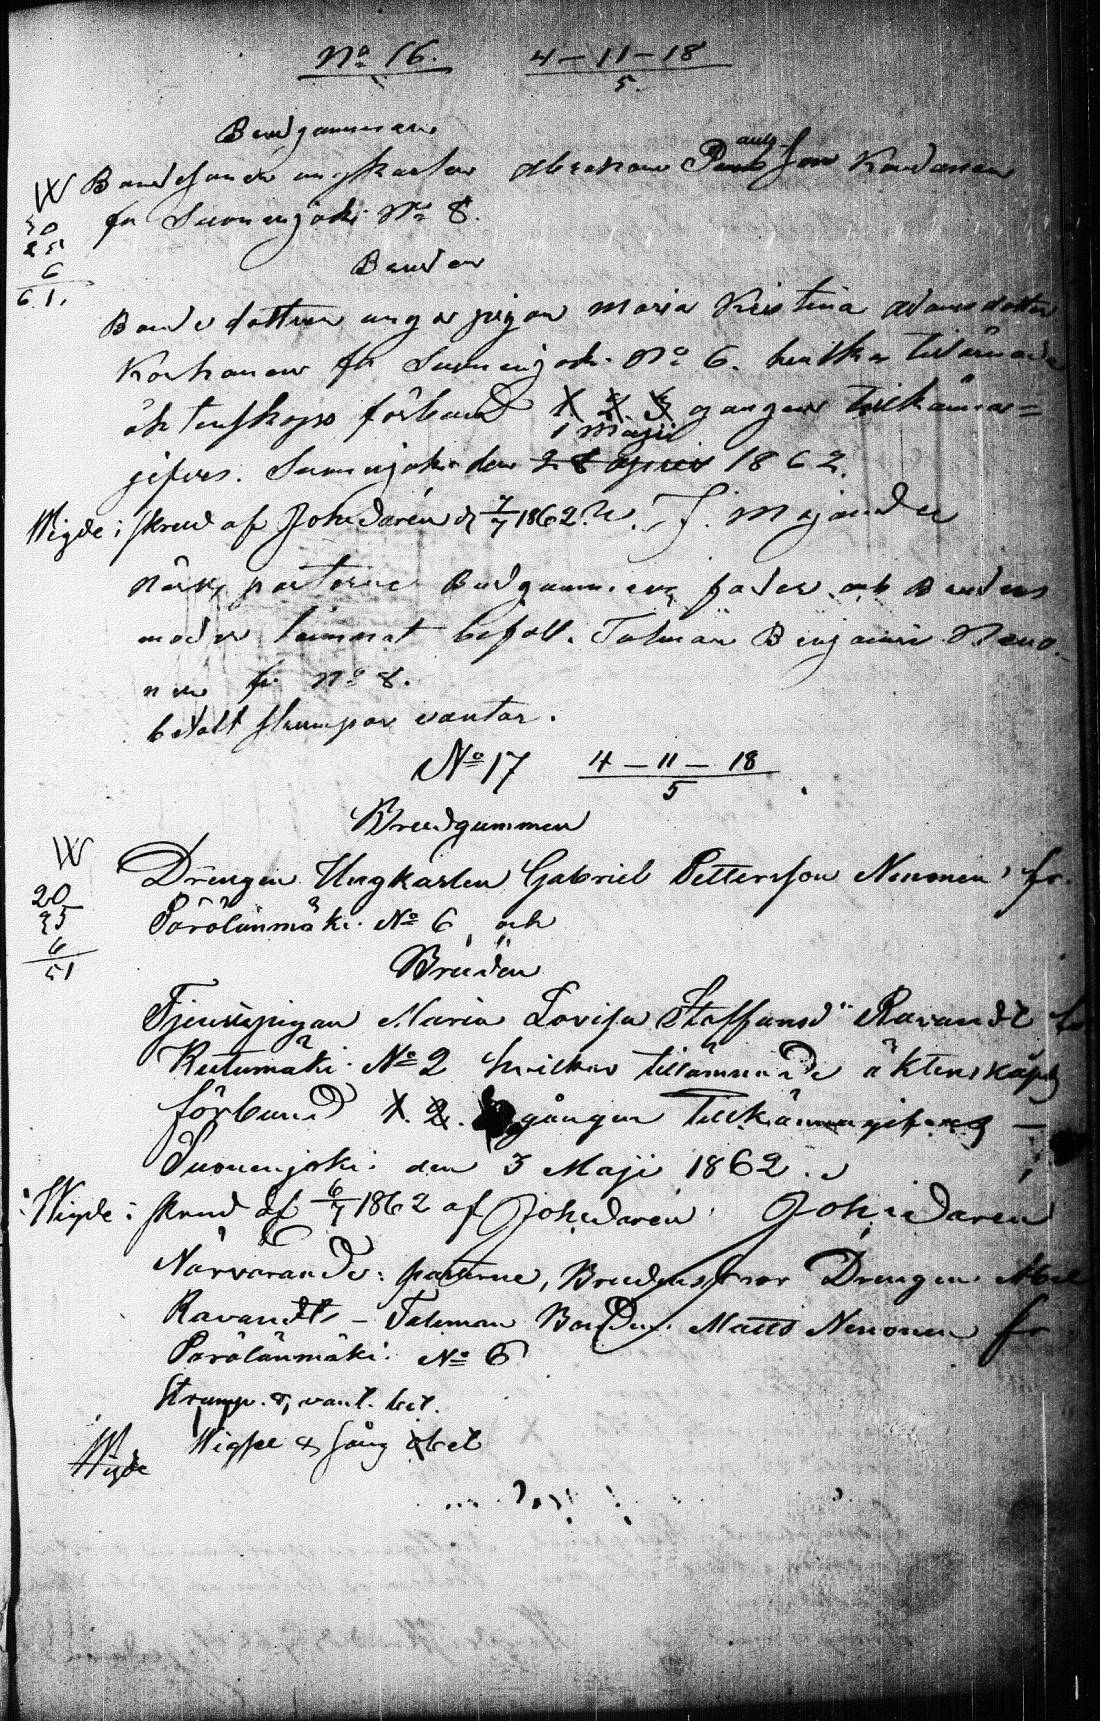 No 16. 4 – 11 – 18
5.
Brudgummen
Bondesonen ungkarlen Abraham Paulsson
fr Suonenjoki No 8.
W
30
25
6
61.
Bruden
Bondedottren unga pigan Maria Kristina Adamsdotter
Korhonen fr Suonenjoki No 6. hvilka tillämnade
äktenskaps förbund 1 2. 3 gången tillkänna=
1 Maji
gifves. Suonenjoki den 28 April 1862.
Wigde: skrud af Joh. Idarén d 7/7 1862. F. Majander
Närv. parterne Brudgummens fader och Brudens
moder lemnat bifall. Talman Benjamin Neno-
nen fr No 8.
betalt strumpor vantar.
No 17 4 – 11 – 18
5
Brudgummen
W
20
25
6
51
Drengen Ungkarlen Gabriel Pettersson Nenonen fr.
Pörölänmäki No 6 och
Bruden
Tjenstepigan Maria Lovisa Staffansd Ravandt fr
Rutumäki No 2 hvilkas tillämnade äktenskaps
förbund 1. 2. gången Tillkännagifves –
Suonenjoki den 3 Maji 1862.
Wigde: skrud af 6/7 1862 af Joh Idarén Joh Idarén
Närvarande: parterne, Brudens Drengen Abel
Ravandt – Talman Bonden Matts Nenonen fr
Pörölänmäki No 6
Strump. & vant. bet.
Wigsel & sång bet
Wigde